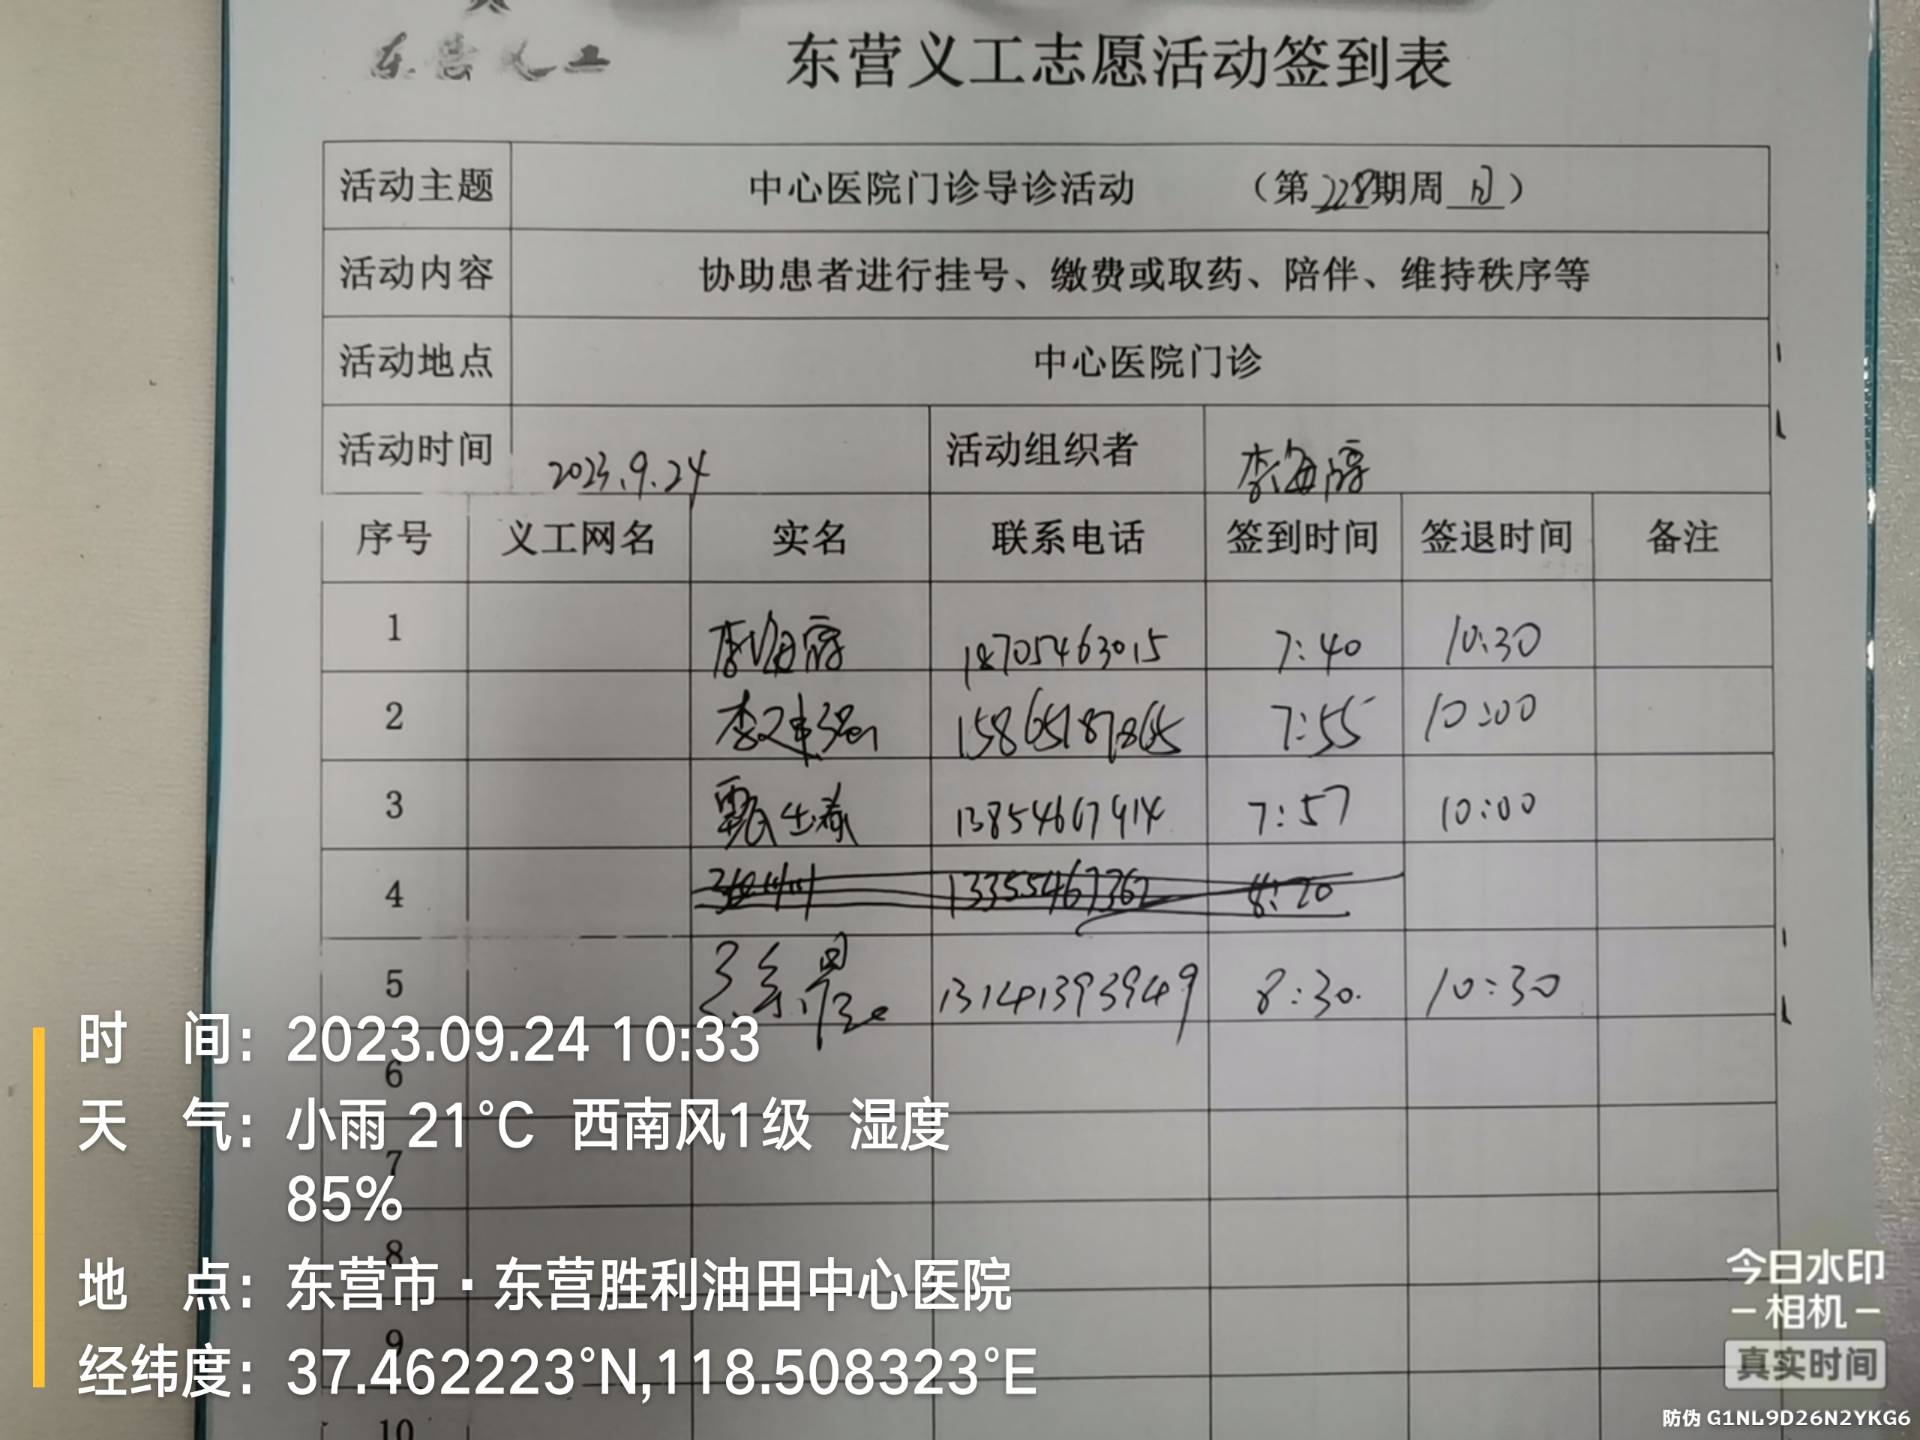 东营义工
东营义工志愿活动签到表
活动主题 中心医院门诊导诊活动 （第228期周日）
活动内容 协助患者进行挂号、缴费或取药、陪伴、维持秩序等
活动地点 中心医院门诊
活动时间 2023.9.24 活动组织者 李海
序号 义工网名 实名 联系电话 签到时间 签退时间 备注
1 李海 18705463015 7:40 10:30
2 李建强 15865187865 7:55 10:00
3 甄 13854667914 7:57 10:00
4 13355467367 8:20
5 13141393949 8:30 10:30
6
7
8
9
10
时 间：2023.09.24 10:33
天 气：小雨 21°C 西南风1级 湿度
85%
地 点：东营市·东营胜利油田中心医院
经纬度：37.462223°N,118.508323°E
今日水印
相机
真实时间
防伪 G1NL9D26N2YKG6